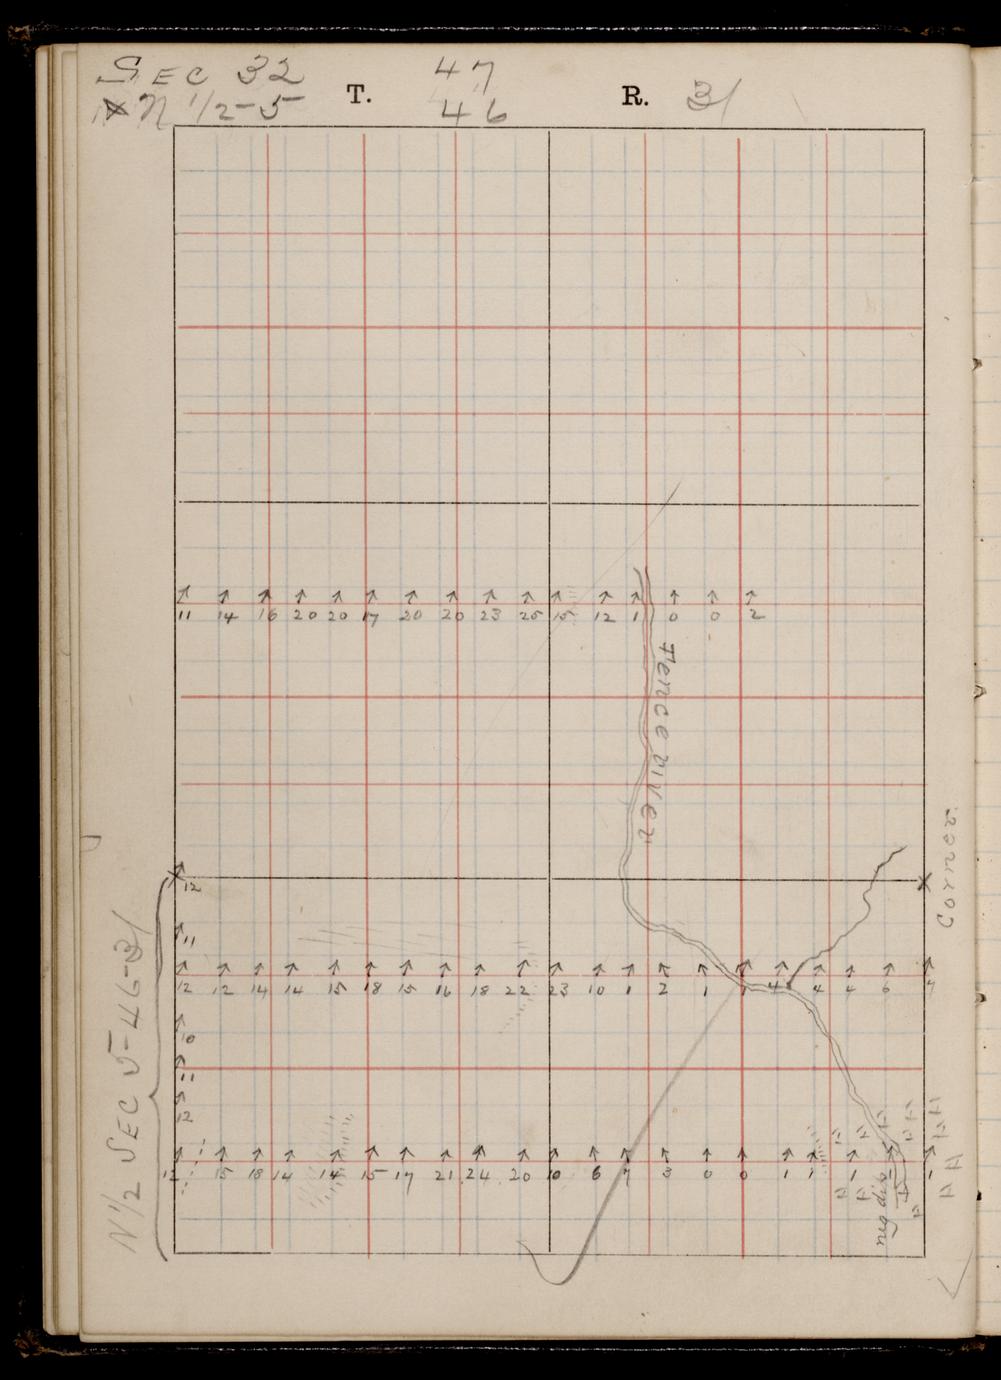 SEC 32 T. 47 R. 31
N 1/2-5 46
11 14 16 20 20 17 20 20 23 25 15 12 1 0 0 2
Fence River
12
11
Corner
12 12 14 14 15 18 15 16 18 22 23 10 1 2 1 1 4 4 4 6 7
10
11
12
N 1/2 SEC 5-46-31
12 15 18 14 14 15 17 21 24 20 10 6 7 3 0 0 1 1 1 1
no dip